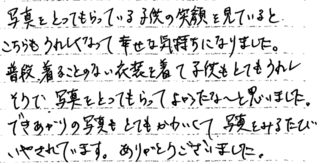 写真をとってもらっている子供の笑顔を見ていると
こちらもうれしくなって幸せな気持ちになりました。
普段、着ることのない衣装を着て子供もとてもうれし
そうで、写真をとってもらってよかったな～と思いました。
できあがりの写真もとてもかわいくて写真をみるたび
いやされています。ありがとうございました。